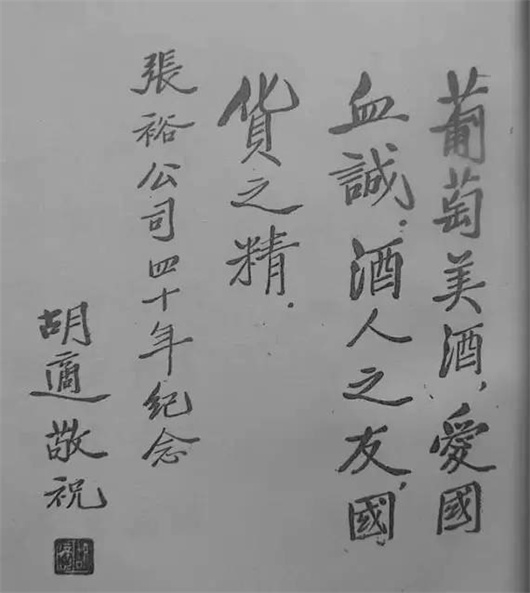 葡萄美酒,愛國
血誠.酒人之友,國
貨之精.
張裕公司四十年紀念
胡適敬祝